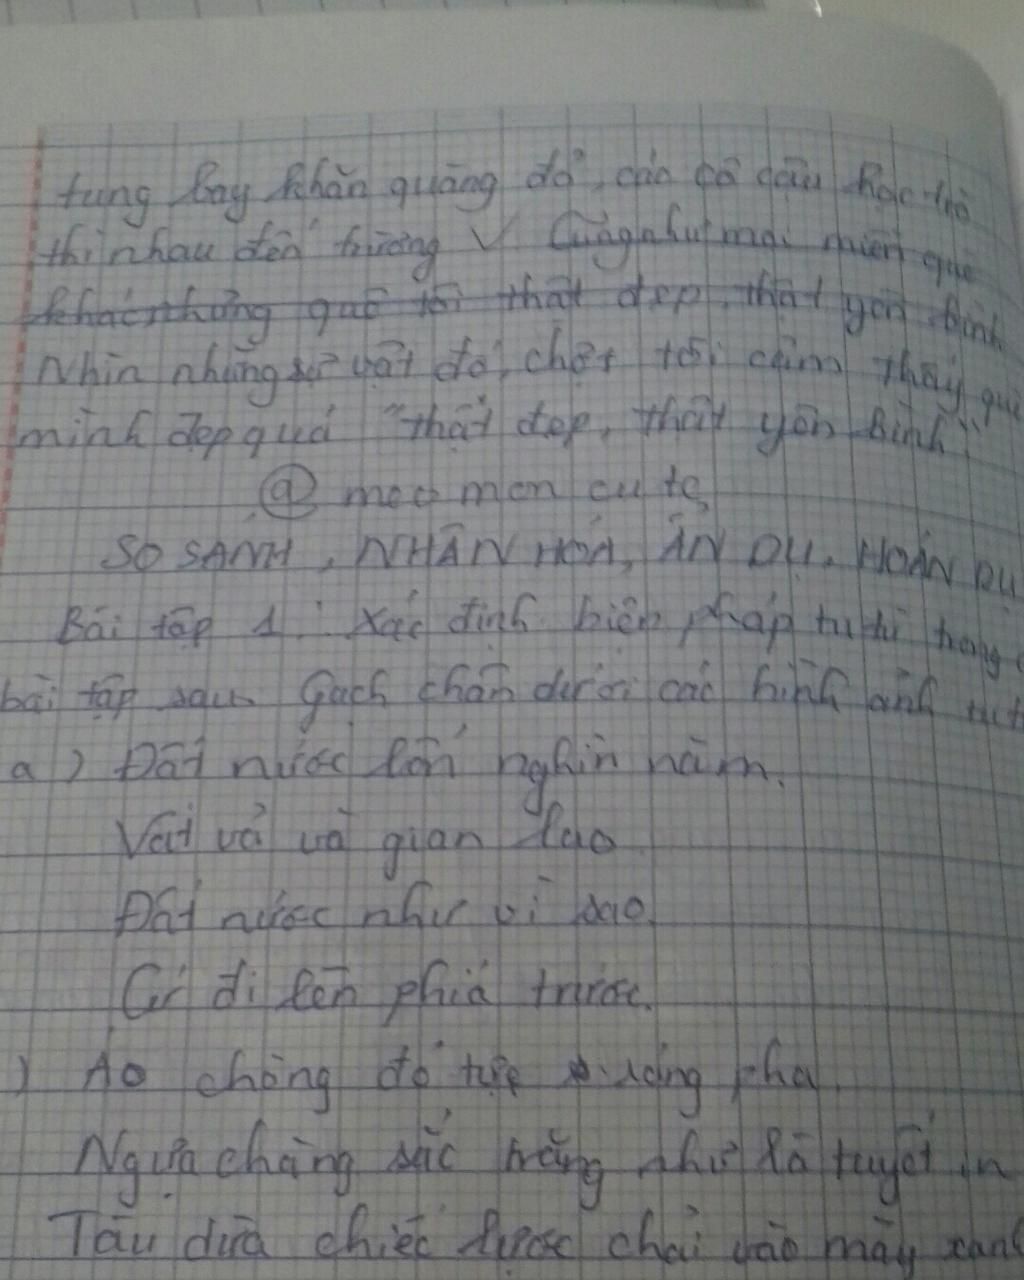 tung bay khăn quàng đỏ, các cô cậu học trò
thi nhau đến trường V Cũng như mọi miền quê
khác nhưng quê tôi thật đẹp, thật yên bình
Nhìn những sự vật đó, chợt tôi cảm thấy quê
mình đẹp quá "thật đẹp, thật yên bình"
@ meo mon cu te
SO SÁNH, NHÂN HÓA, ẨN DỤ, HOÁN DỤ
Bài tập 1: Xác định biện pháp tu từ trong
bài tập sau. Gạch chân dưới các hình ảnh
a) Đất nước bốn nghìn năm.
Vất vả và gian lao
Đất nước như vì sao
Cứ đi lên phía trước.
) Áo chàng đỏ tựa ráng pha
Ngựa chàng sắc trắng như là tuyết in
Tàu dừa chiếc lược chải vào mây xanh